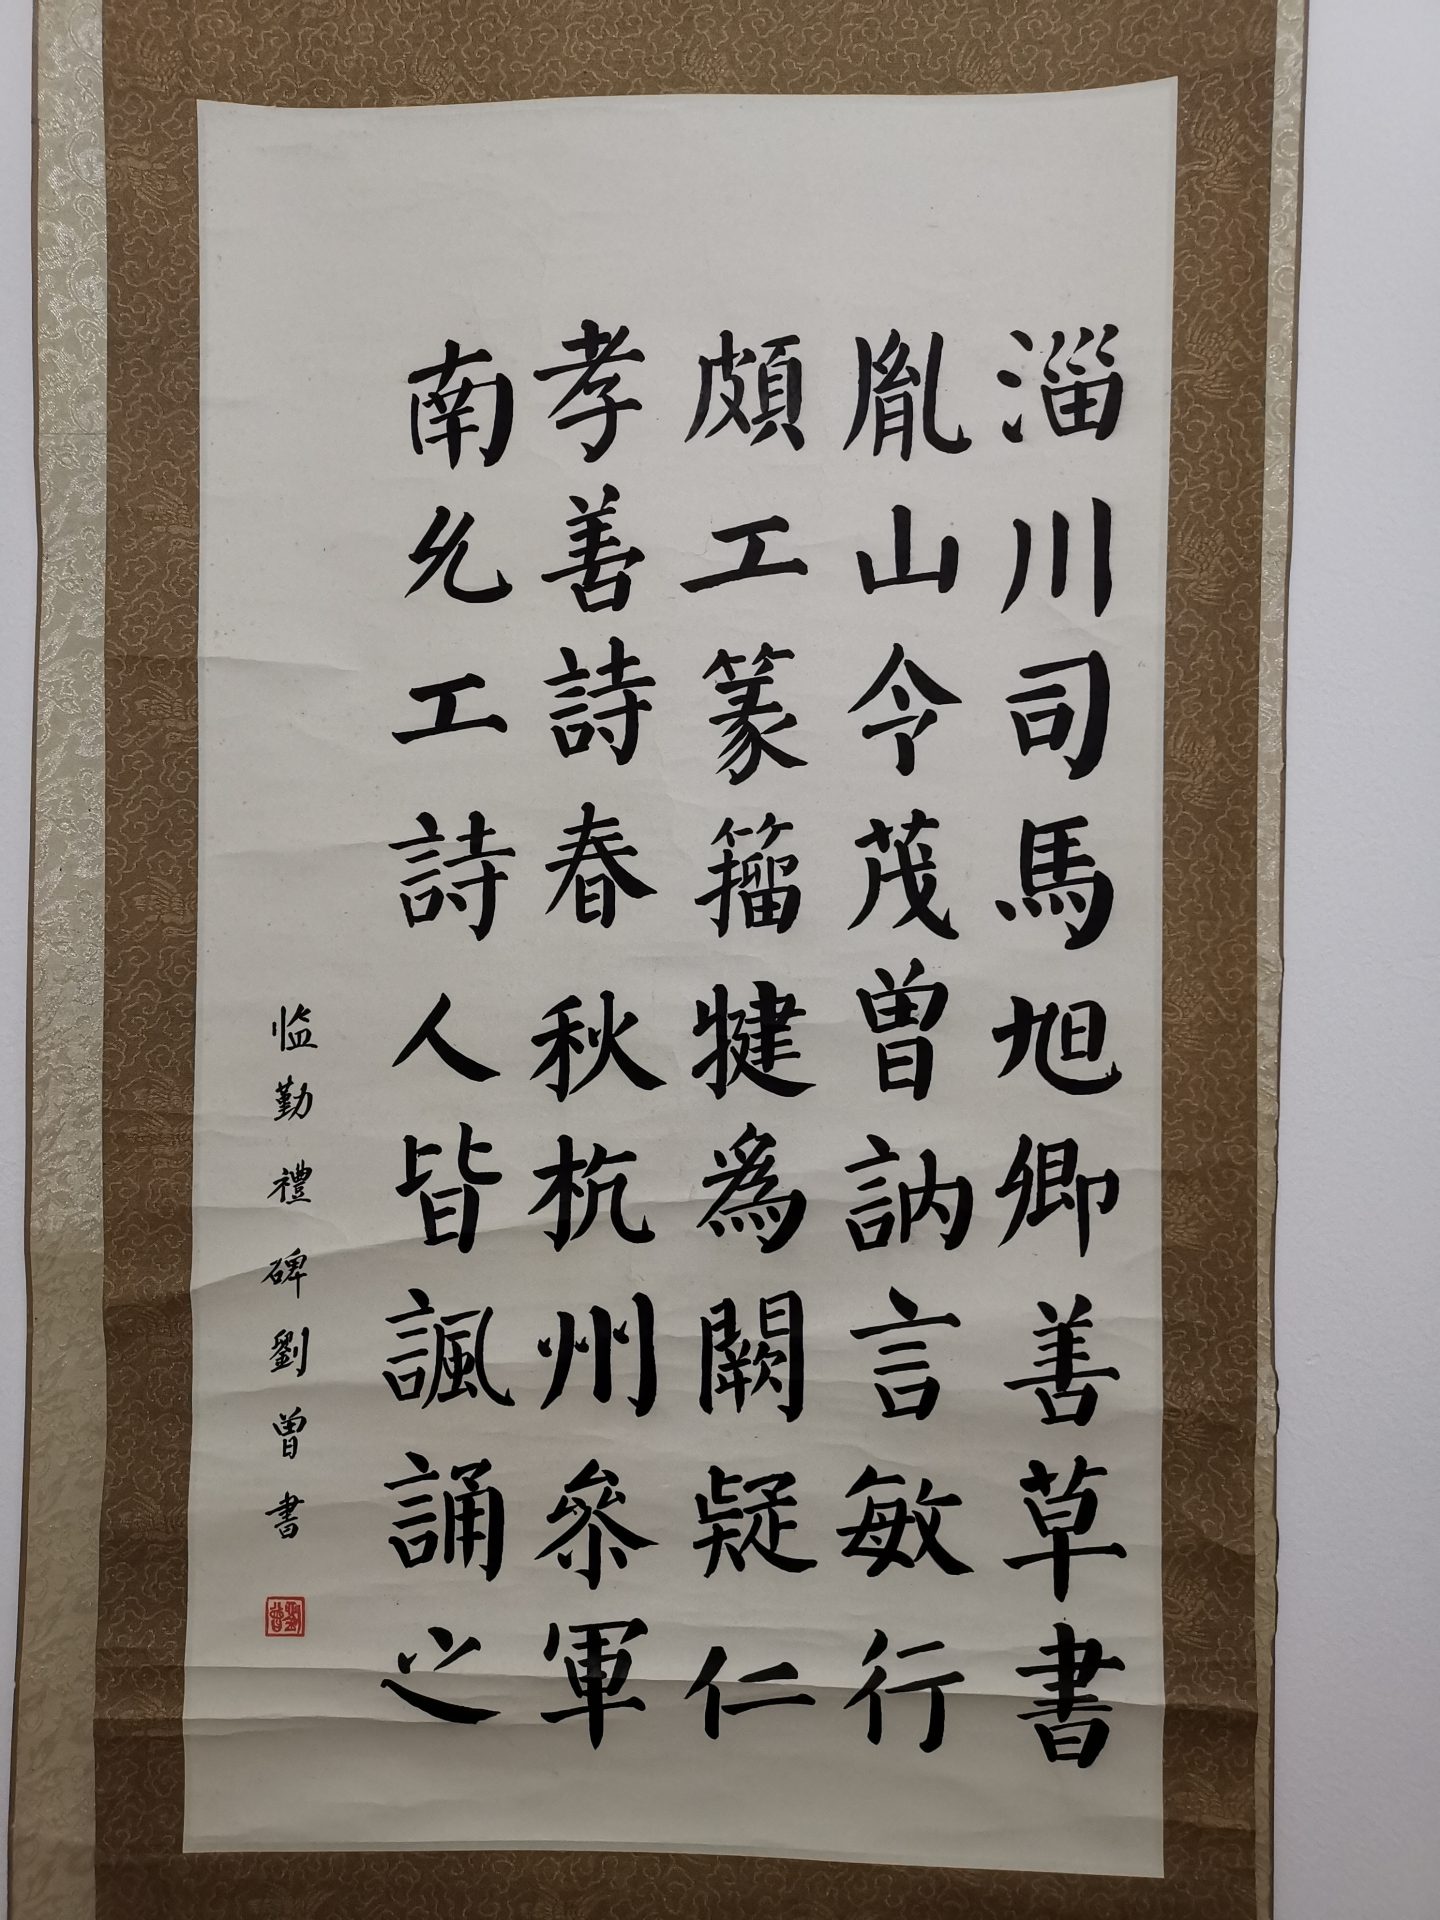 淄川司馬旭卿善草書
胤山令茂曽訥言敏行
頗工篆籀犍為闕疑仁
孝善詩春秋杭州參軍
南允工詩人皆諷誦之
临勤禮碑劉曽書
劉曽